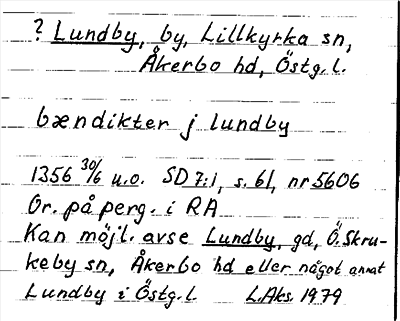 ? Lundby, by, Lillkyrka sn,
Åkerbo hd, Östg. l.
bændikter j lundby
1356 30/6 u.o. SD 7:1, s. 61, nr 5606
Or. på perg. i RA
Kan möjl. avse Lundby, gd, Ö. Skru-
keby sn, Åkerbo hd eller något annat
Lundby i Östg. l. L.Aks. 1979